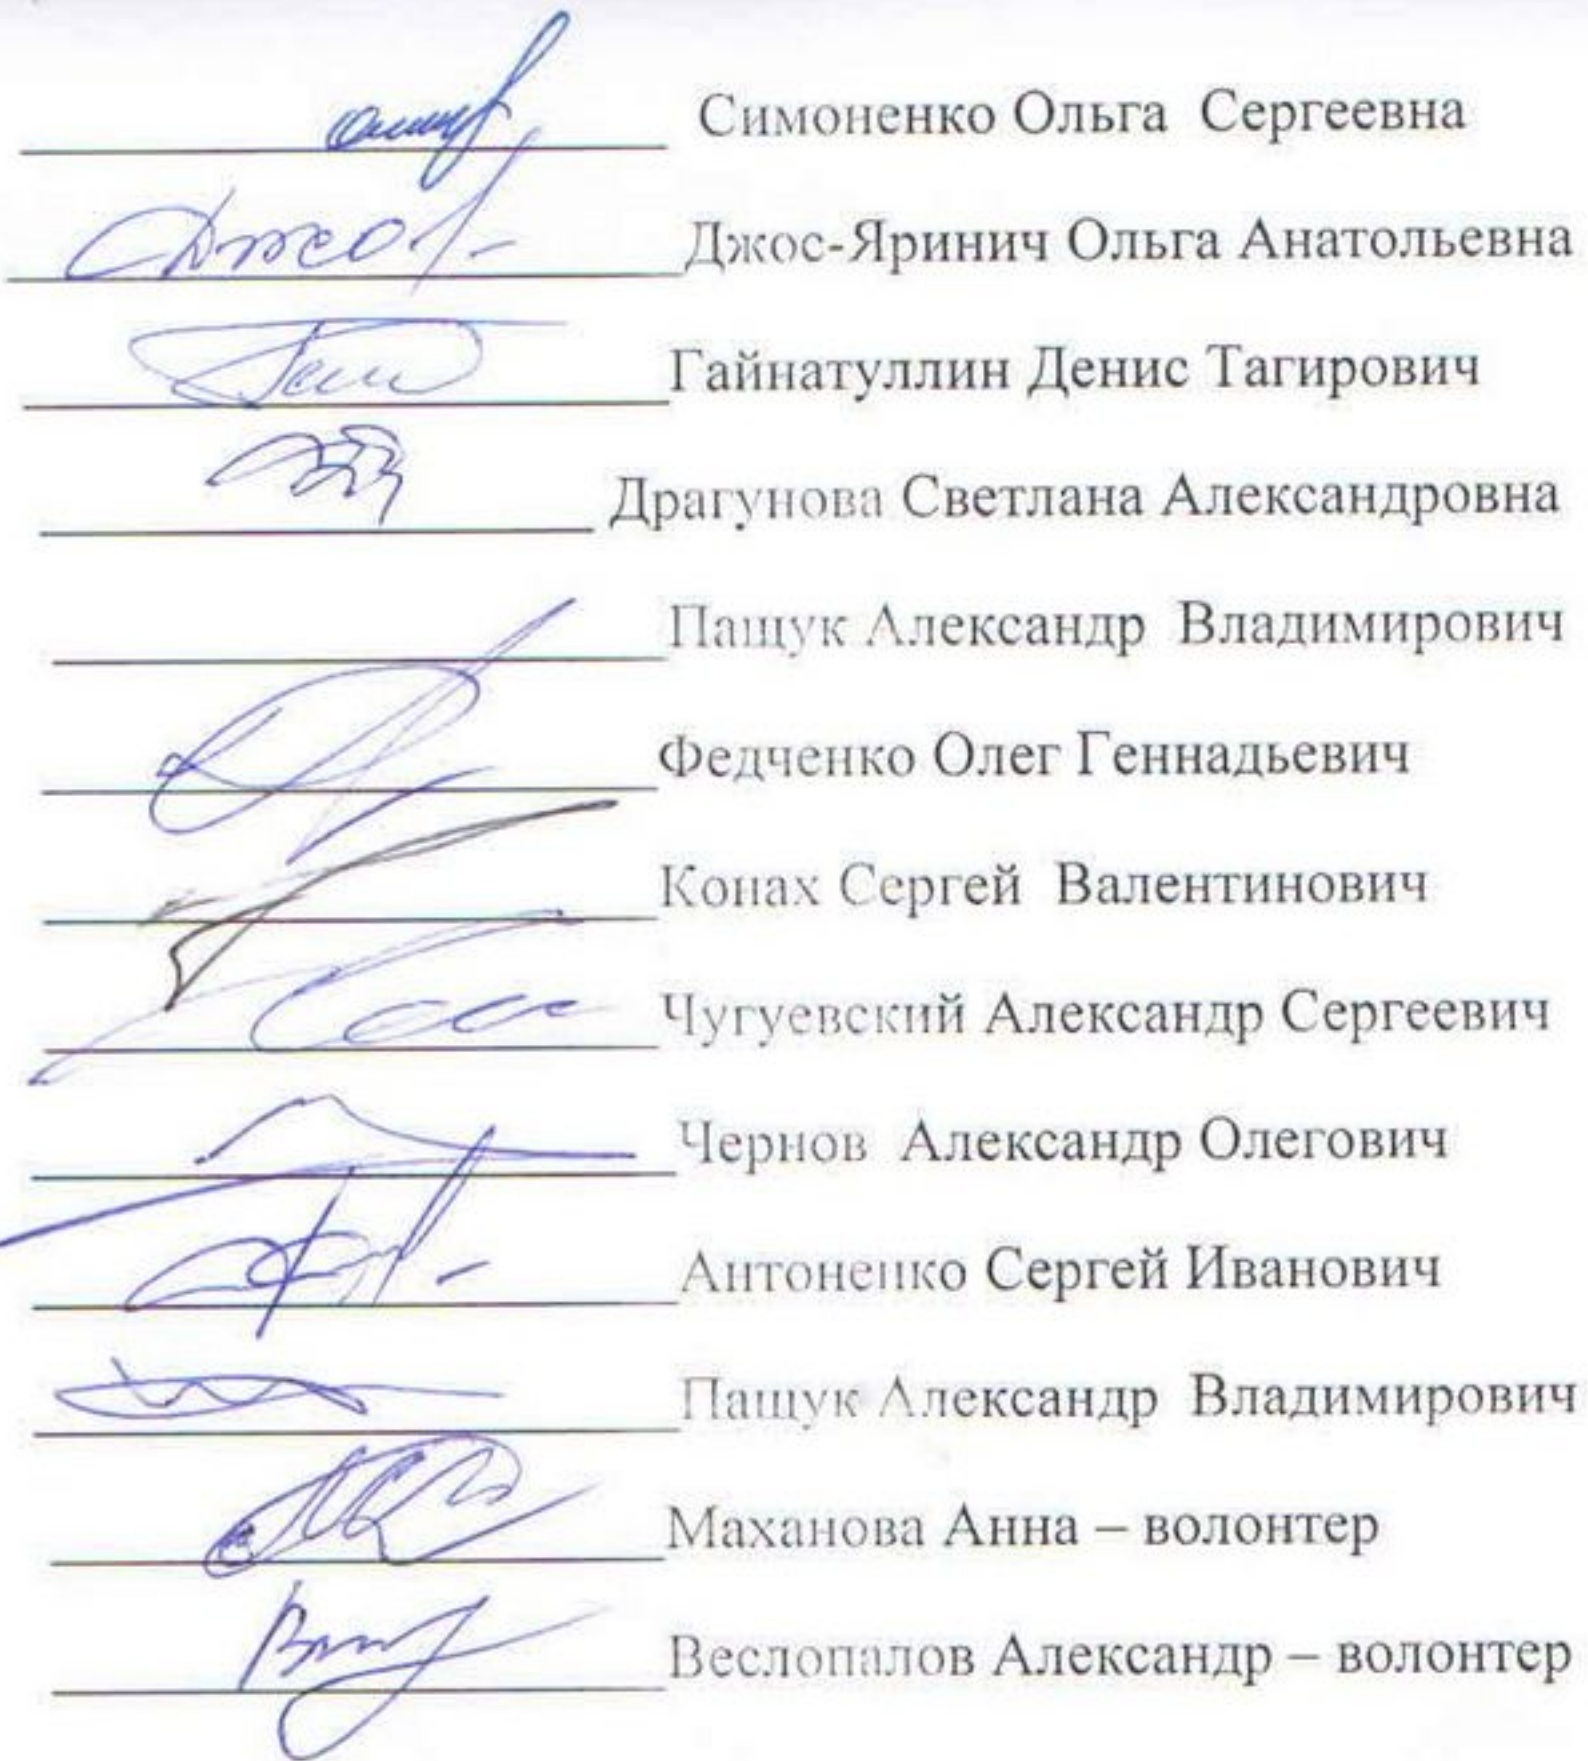 Симоненко Ольга Сергеевна
Джос-Яринич Ольга Анатольевна
Гайнатуллин Денис Тагирович
Драгунова Светлана Александровна
Пащук Александр Владимирович
Федченко Олег Геннадьевич
Конах Сергей Валентинович
Чугуевский Александр Сергеевич
Чернов Александр Олегович
Антоненко Сергей Иванович
Пащук Александр Владимирович
Маханова Анна – волонтер
Веслопалов Александр – волонтер